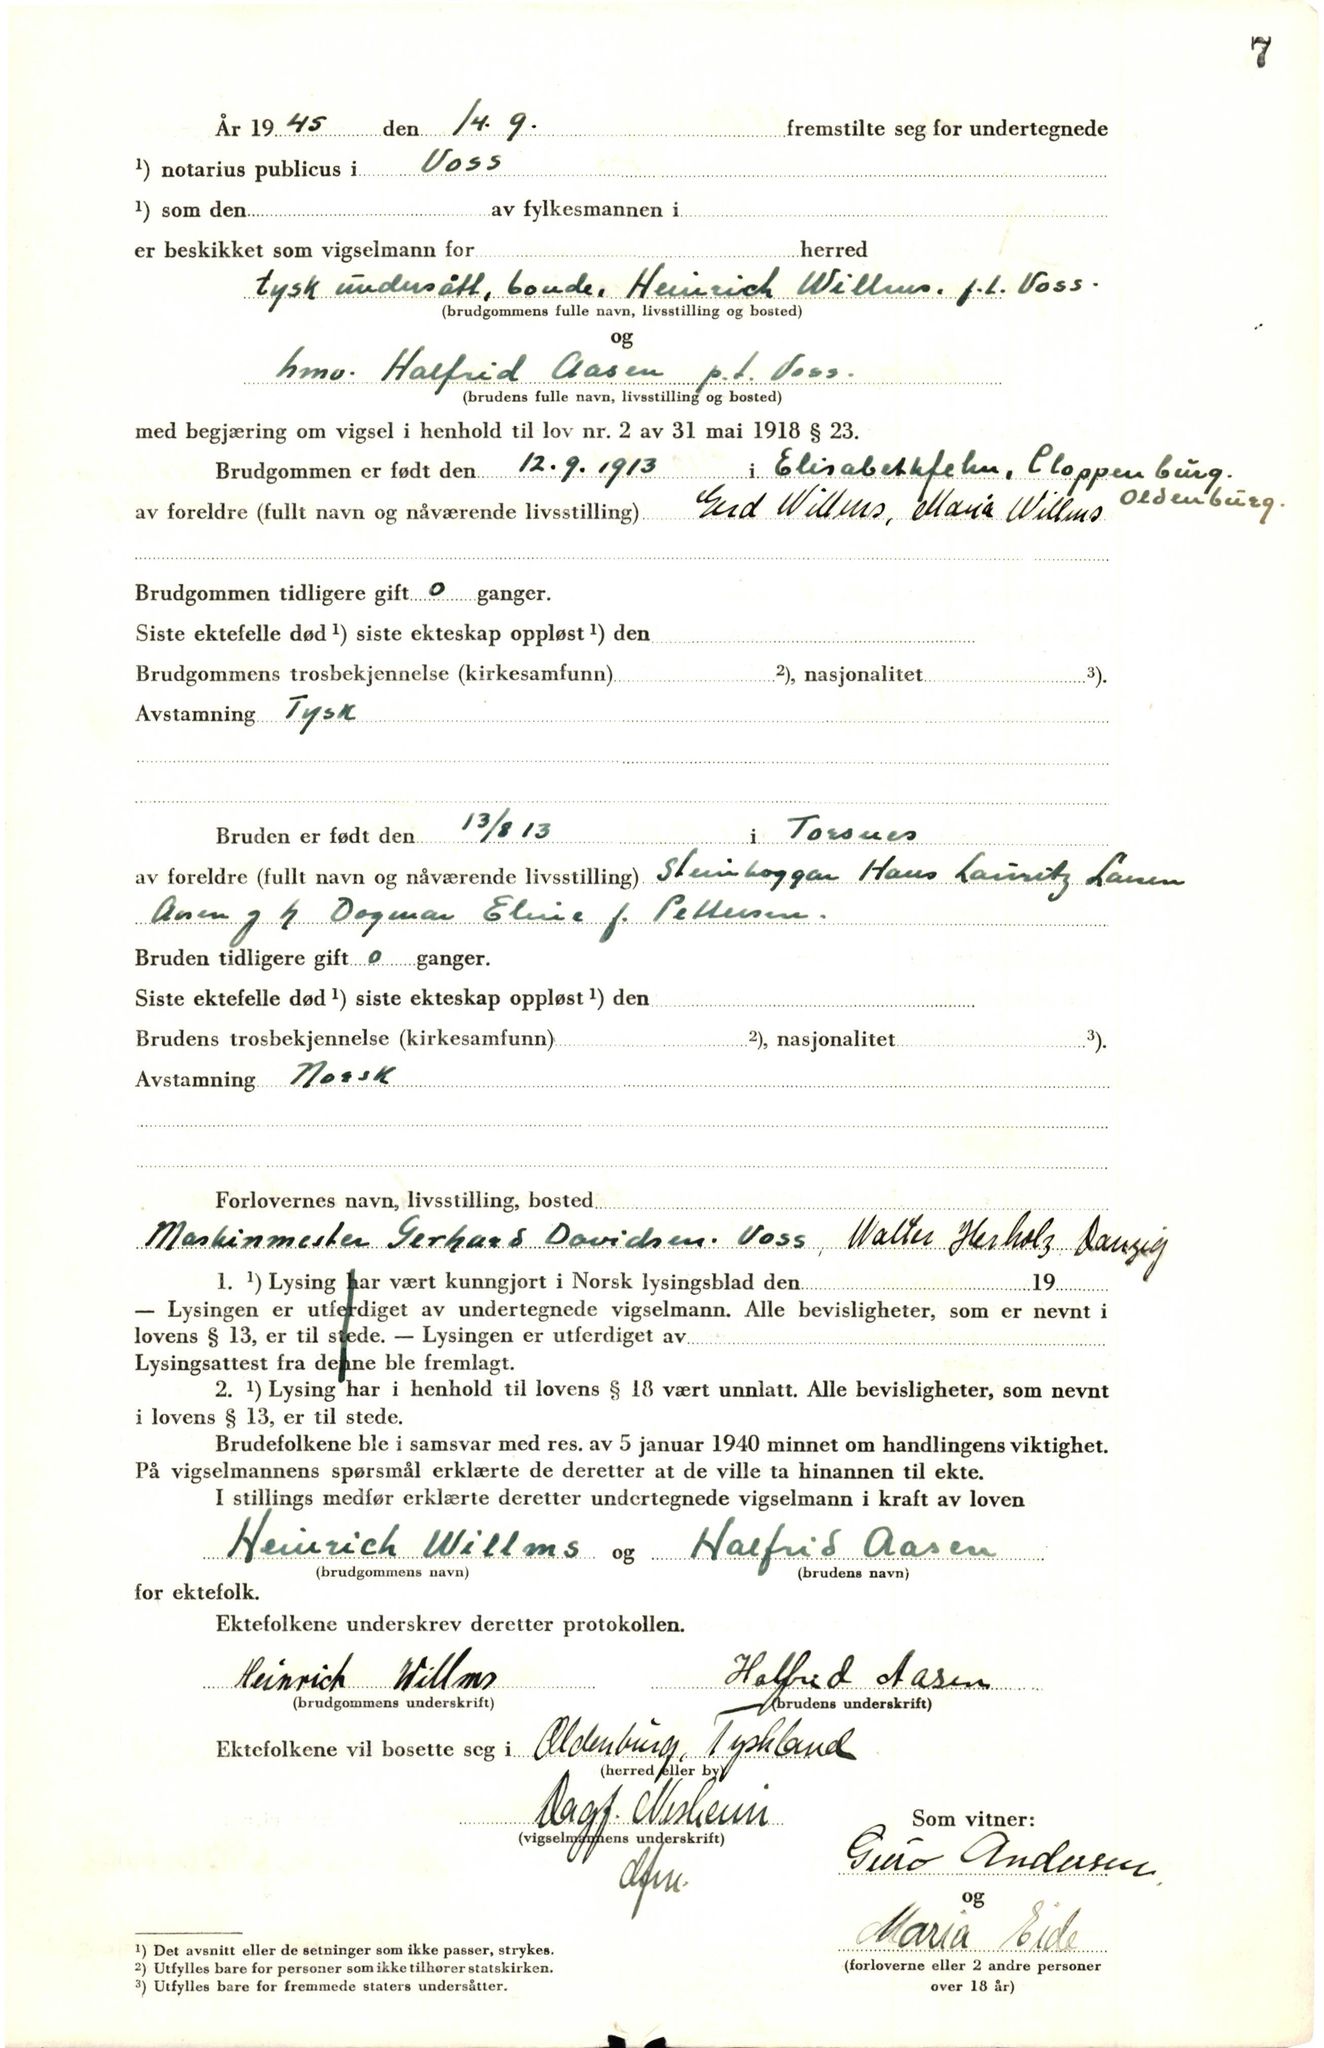 7
År 1945 den 14. 9. fremstilte seg for undertegnede
¹) notarius publicus i Voss
¹) som den av fylkesmannen i
er beskikket som vigselmann for herred
tysk undersått, bonde, Heinrich Willms. p.t. Voss.
(brudgommens fulle navn, livsstilling og bosted)
og
hmv. Halfrid Aasen p.t. Voss.
(brudens fulle navn, livsstilling og bosted)
med begjæring om vigsel i henhold til lov nr. 2 av 31 mai 1918 § 23.
Brudgommen er født den 12. 9. 1913 i Elisabethfehn, Cloppenburg.
Oldenburg.
av foreldre (fullt navn og nåværende livsstilling) Gerd Willms, Maria Willms
Brudgommen tidligere gift 0 ganger.
Siste ektefelle død ¹) siste ekteskap oppløst ¹) den
Brudgommens trosbekjennelse (kirkesamfunn) ²), nasjonalitet ³).
Avstamning Tysk
Bruden er født den 13/8 13 i Torsnes
av foreldre (fullt navn og nåværende livsstilling) Steinhoggar Hans Lauritz Larsen
Aasen og h Dagmar Eline f. Pettersen.
Bruden tidligere gift 0 ganger.
Siste ektefelle død ¹) siste ekteskap oppløst ¹) den
Brudens trosbekjennelse (kirkesamfunn) ²), nasjonalitet ³).
Avstamning Norsk
Forlovernes navn, livsstilling, bosted
Maskinmester Gerhard Davidsen. Voss, Walter Herholz Danzig
1. ¹) Lysing har vært kunngjort i Norsk lysingsblad den 19
— Lysingen er utferdiget av undertegnede vigselmann. Alle bevisligheter, som er nevnt i
lovens § 13, er til stede. — Lysingen er utferdiget av
Lysingsattest fra denne ble fremlagt.
2. ¹) Lysing har i henhold til lovens § 18 vært unnlatt. Alle bevisligheter, som nevnt
i lovens § 13, er til stede.
Brudefolkene ble i samsvar med res. av 5 januar 1940 minnet om handlingens viktighet.
På vigselmannens spørsmål erklærte de deretter at de ville ta hinannen til ekte.
I stillings medfør erklærte deretter undertegnede vigselmann i kraft av loven
Heinrich Willms og Halfrid Aasen
(brudgommens navn) (brudens navn)
for ektefolk.
Ektefolkene underskrev deretter protokollen.
Heinrich Willms Halfrid Aasen
(brudgommens underskrift) (brudens underskrift)
Ektefolkene vil bosette seg i Oldenburg, Tyskland
(herred eller by)
Dagf. Nesheim
(vigselmannens underskrift)
dfm.
Som vitner:
Guro Andersen
og
Maria Eide
(forloverne eller 2 andre personer
over 18 år)
¹) Det avsnitt eller de setninger som ikke passer, strykes.
²) Utfylles bare for personer som ikke tilhører statskirken.
³) Utfylles bare for fremmede staters undersåtter.